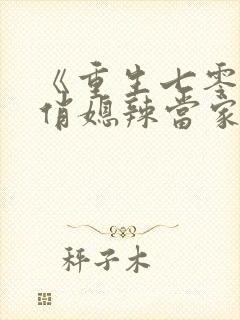 《重生七零
俏媳辣當家
秤子木